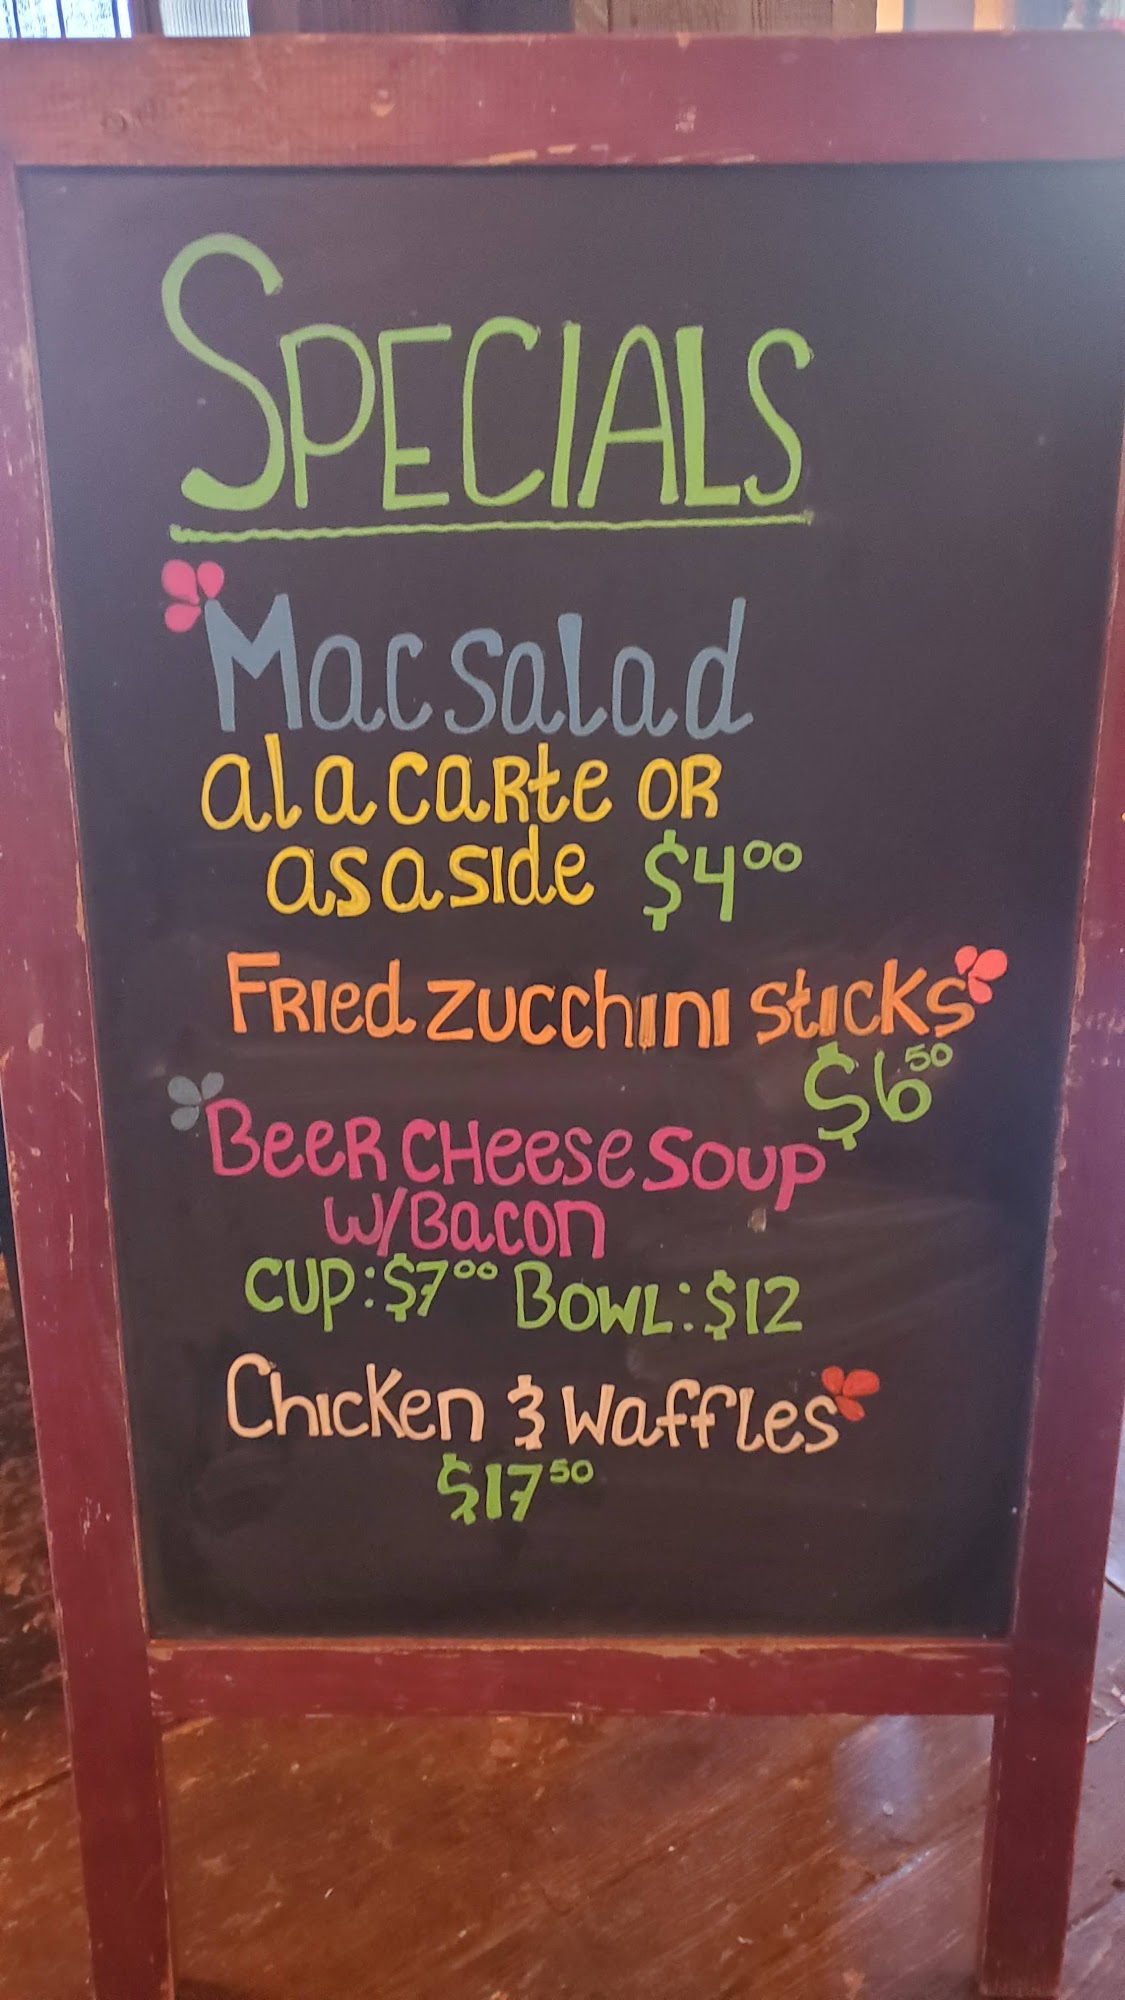 SPECIALS
Mac Salad
ala carte OR
as a side $4.00
Fried zucchini sticks
$6.50
Beer Cheese Soup
w/Bacon
Cup: $7.00 Bowl: $12
Chicken & Waffles
$17.50